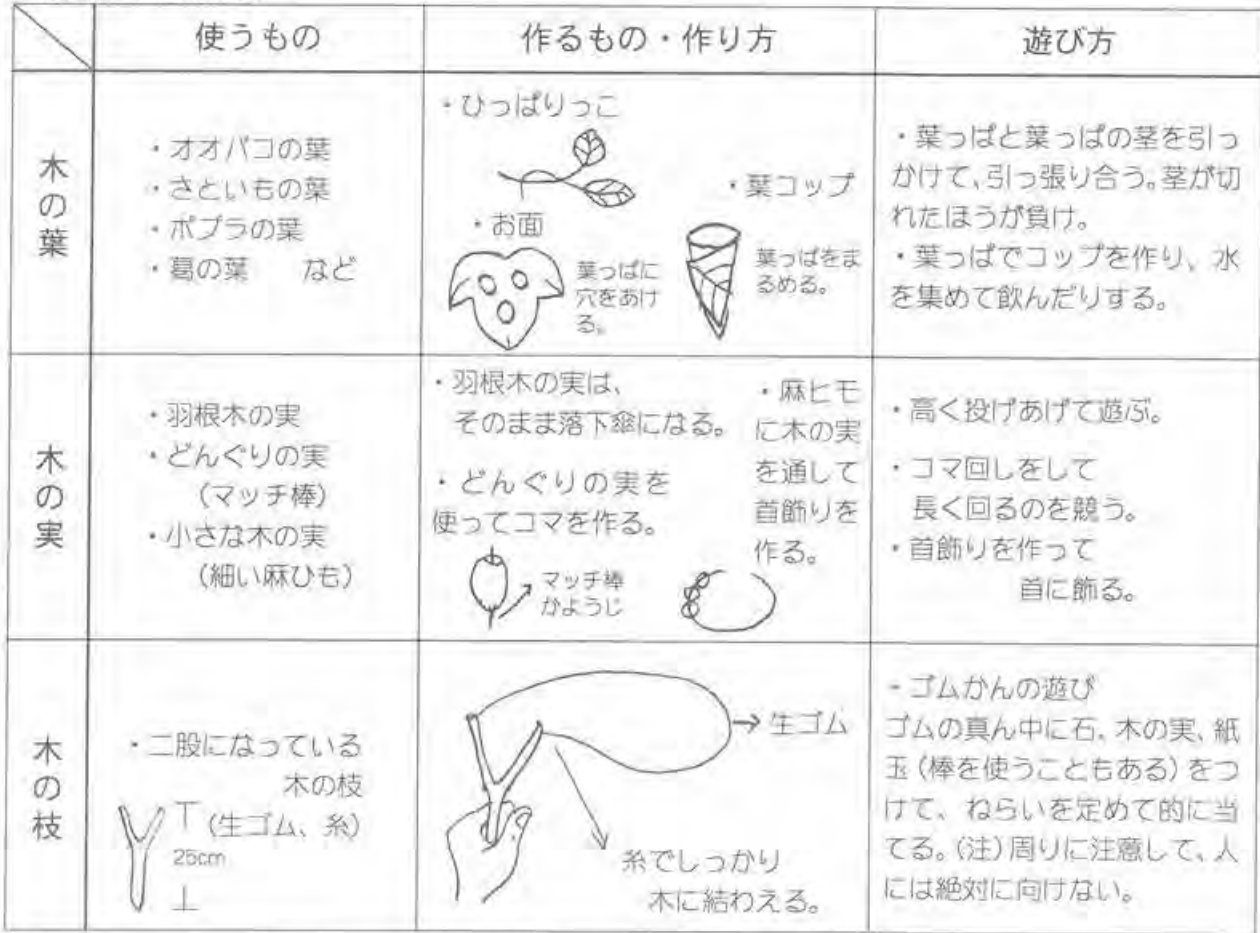 使うもの
作るもの・作り方
遊び方
木の葉
・オオバコの葉
・さといもの葉
・ポプラの葉
・葛の葉　など
・ひっぱりっこ
・お面
葉っぱに
穴をあけ
る。
・葉コップ
葉っぱをま
るめる。
・葉っぱと葉っぱの茎を引っ
かけて、引っ張り合う。茎が切
れたほうが負け。
・葉っぱでコップを作り、水
を集めて飲んだりする。
木の実
・羽根木の実
・どんぐりの実
（マッチ棒）
・小さな木の実
（細い麻ひも）
・羽根木の実は、
そのまま落下傘になる。
・どんぐりの実を
使ってコマを作る。
マッチ棒
かようじ
・麻ヒモ
に木の実
を通して
首飾りを
作る。
・高く投げあげて遊ぶ。
・コマ回しをして
長く回るのを競う。
・首飾りを作って
首に飾る。
木の枝
・二股になっている
木の枝
（生ゴム、糸）
25cm
→生ゴム
糸でしっかり
木に結わえる。
・ゴムかんの遊び
ゴムの真ん中に石、木の実、紙
玉（棒を使うこともある）をつ
けて、ねらいを定めて的に当
てる。（注）周りに注意して、人
には絶対に向けない。